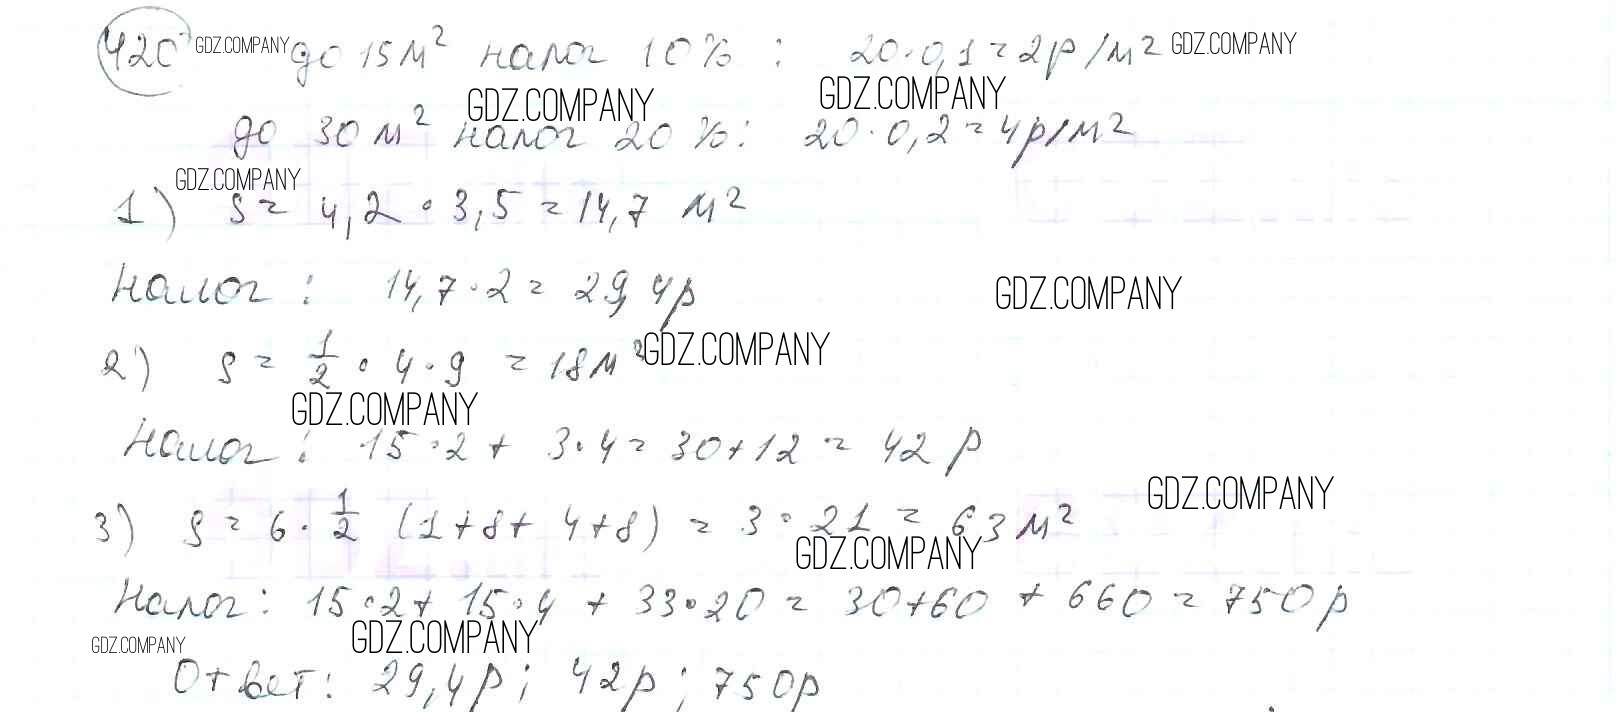 420 GDZ.COMPANY до 15 м² налог 10% : 20·0,1=2р/м² GDZ.COMPANY
GDZ.COMPANY GDZ.COMPANY
до 30 м² налог 20%: 20·0,2=4р/м²
GDZ.COMPANY
1) S= 4,2·3,5=14,7 м²
Налог: 14,7·2= 29,4р GDZ.COMPANY
2) S= 1/2 · 4·9 = 18м² GDZ.COMPANY
GDZ.COMPANY
Налог: 15·2+ 3·4=30+12 = 42 р
GDZ.COMPANY
3) S= 6· 1/2 (1+8+ 4+8) = 3·21 = 63 м²
GDZ.COMPANY
Налог: 15·2+ 15·4 + 33·20= 30+60 + 660 = 750р
GDZ.COMPANY GDZ.COMPANY
Ответ: 29,4р; 42р; 750р